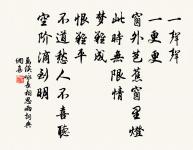 一聲聲
一更更
窗外芭蕉窗里燈
此時無限情
夢難成
恨難平
不道愁人不喜聽
空階滴到明
万俟咏長相思雨詞典
網